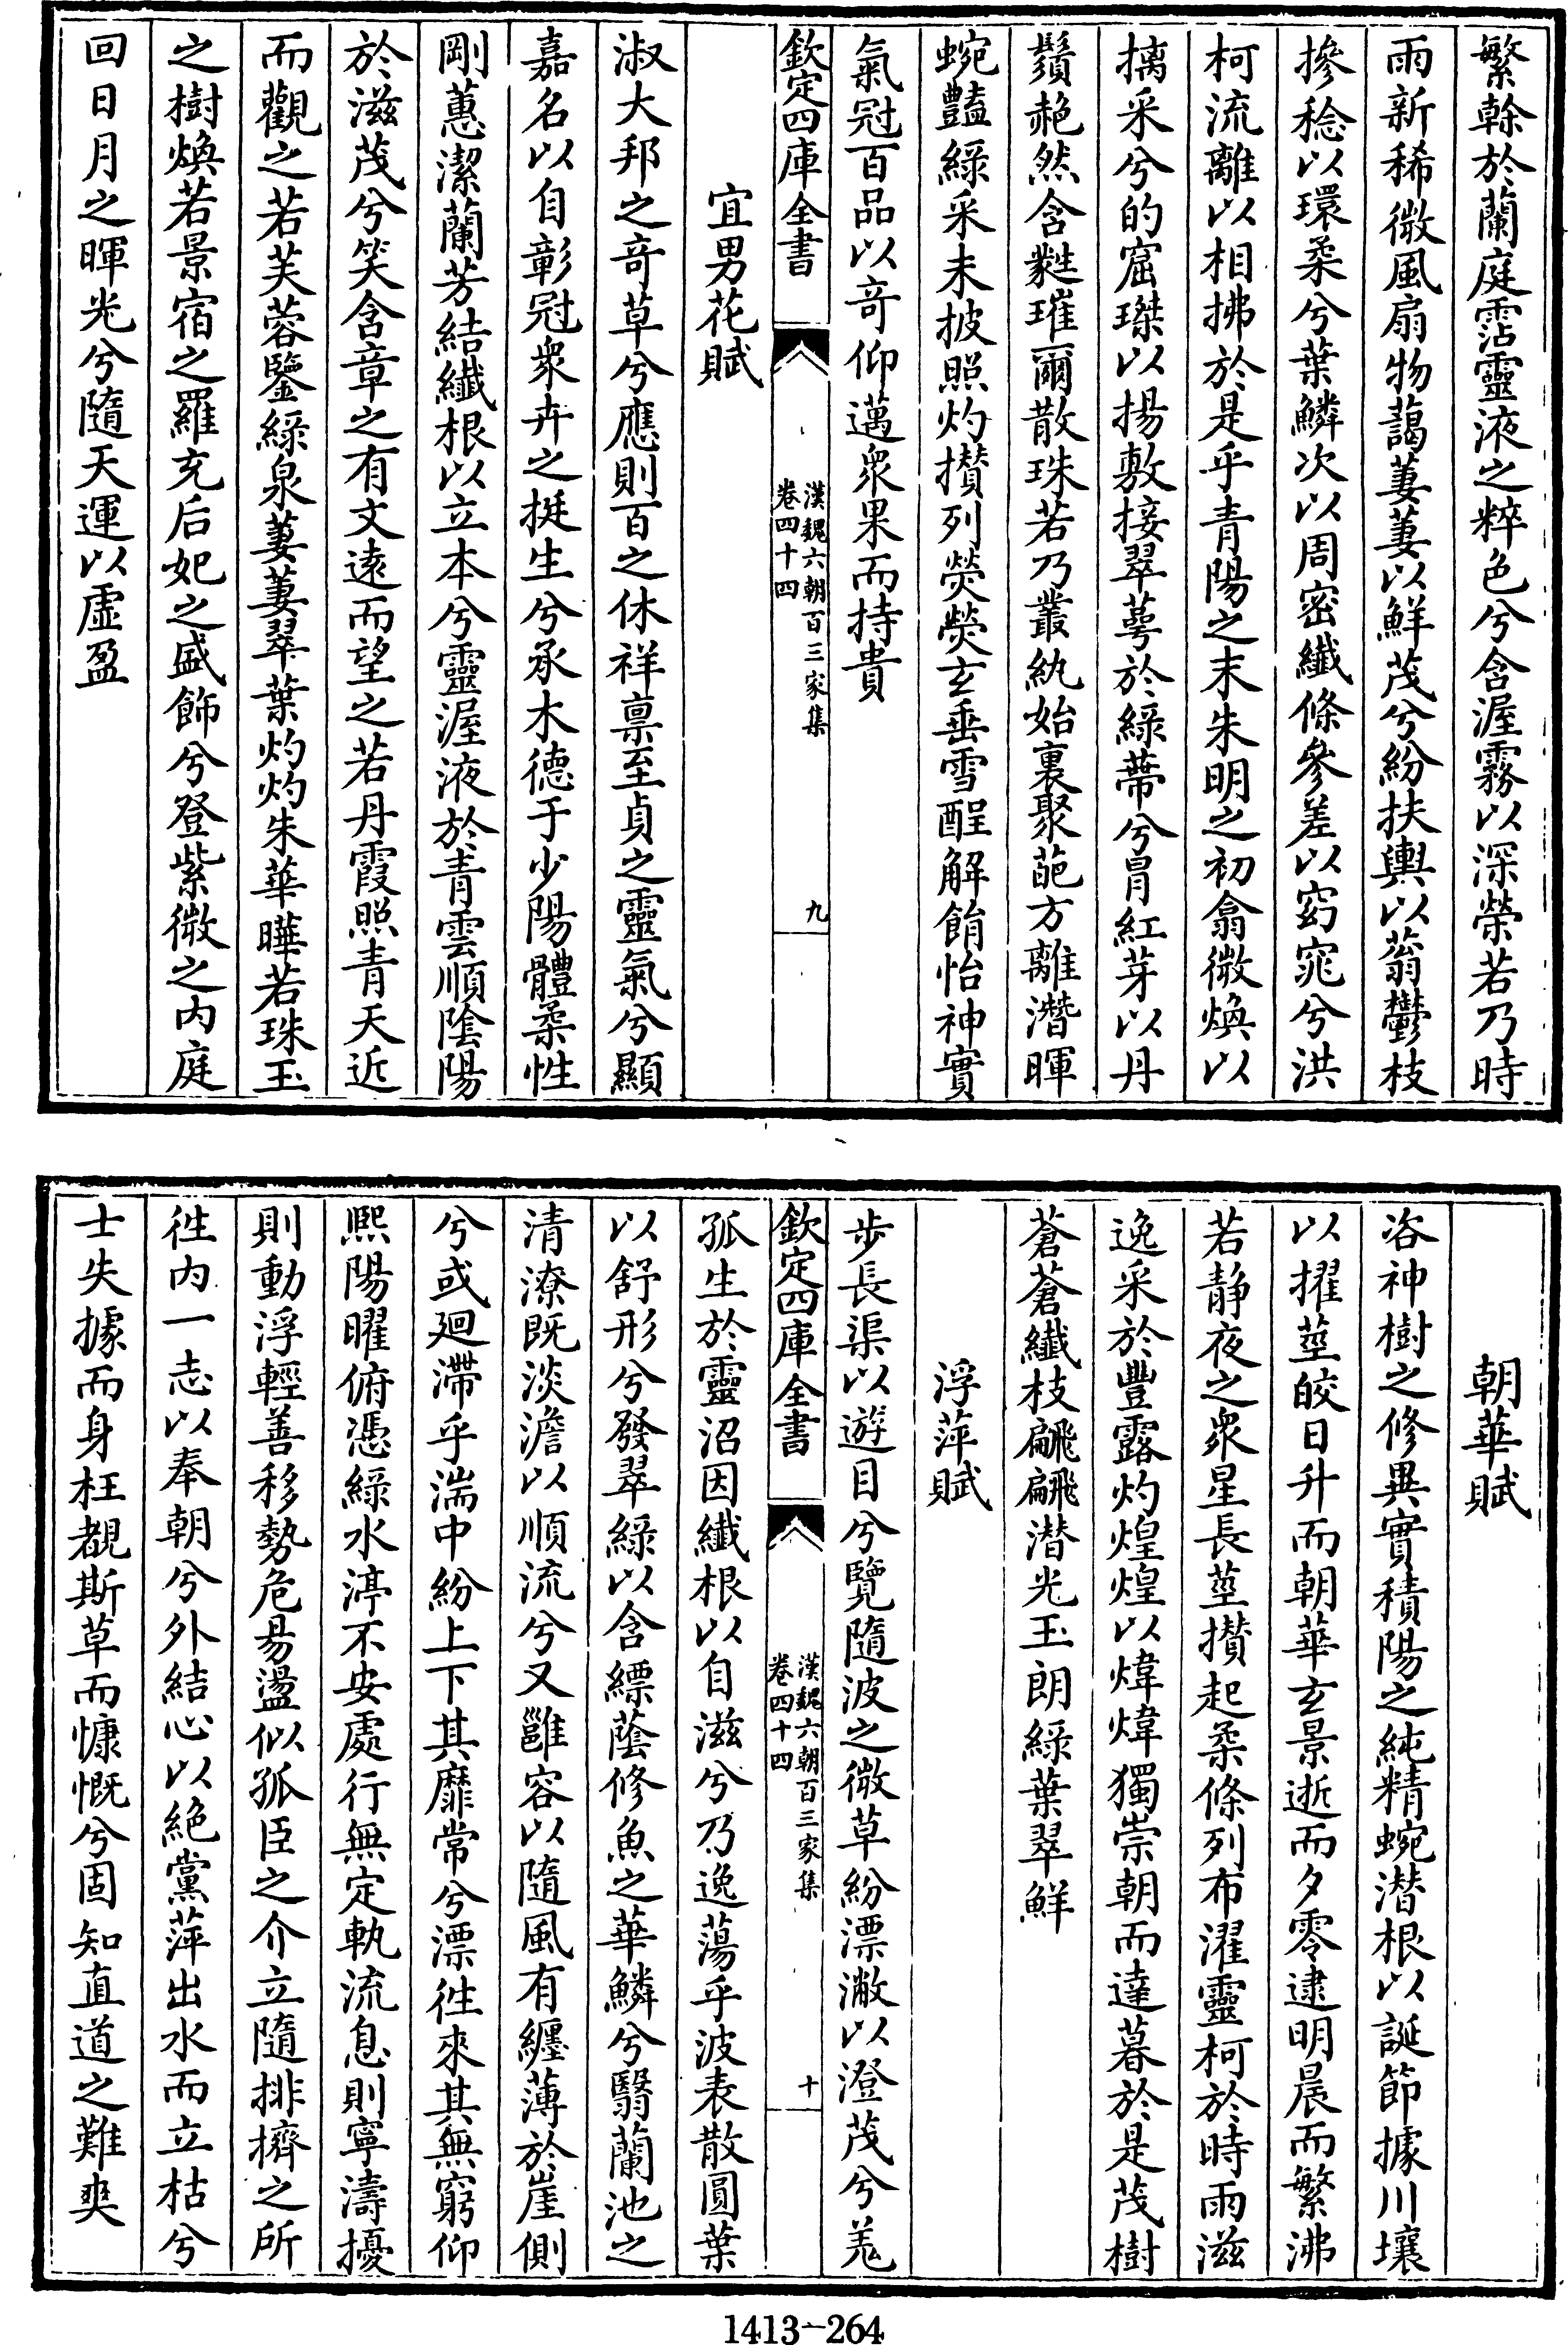 繁榦於蘭庭霑靈液之粹色兮含渥霧以深榮若乃時
雨新稀微風扇物藹萋萋以鮮茂兮紛扶輿以蓊鬱枝
摻稔以環柔兮葉鱗次以周密纖條參差以窈窕兮洪
柯流離以相拂於是乎青陽之末朱明之初翕微煥以
摛采兮的窟㻎以揚敷接翠萼於綠蔕兮冒紅芽以丹
鬚赩然含蕤璀爾散珠若乃叢紈始裹聚葩方離潛暉
蜿豔綠采未披照灼攅列熒熒玄垂雪酲解餶怡神實
氣冠百品以竒仰邁衆果而持貴
欽定四庫全書
漢魏六朝百三家集
卷四十四
九
宜男花賦
淑大邦之竒草兮應則百之休祥禀至貞之靈氣兮顯
嘉名以自彰冠衆卉之挺生兮承木德于少陽體柔性
剛蕙潔蘭芳結纖根以立本兮靈渥液於青雲順陰陽
於滋茂兮笑含章之有文逺而望之若丹霞照青天近
而觀之若芙蓉鑒綠泉萋萋翠葉灼灼朱華曄若珠玉
之樹煥若景宿之羅充后妃之盛飾兮登紫微之内庭
回日月之暉光兮隨天運以虚盈
朝華賦
洛神樹之修異實積陽之純精蜿潜根以誕節據川壤
以擢莖皎日升而朝華玄景逝而夕零逮明晨而繁沸
若静夜之衆星長莖攅起柔條列布濯靈柯於時雨滋
逸采於豐露灼煌煌以煒煒獨崇朝而達暮於是茂樹
蒼蒼纖枝翩翩潜光玉朗綠葉翠鮮
浮萍賦
步長渠以遊目兮覽隨波之微草紛漂潎以澄茂兮羗
欽定四庫全書
漢魏六朝百三家集
卷四十四
十
孤生於靈沼因纖根以自滋兮乃逸蕩乎波表散圓葉
以舒形兮發翠綠以含縹蔭修魚之華鱗兮翳蘭池之
清潦既淡澹以順流兮又雝容以隨風有纒薄於崖側
兮或廻滯乎湍中紛上下其靡常兮漂徃來其無窮仰
熙陽曜俯憑綠水渟不安處行無定軌流息則寧濤擾
則動浮輕善移勢危易盪似孤臣之介立隨排擠之所
徃内一志以奉朝兮外結心以絶黨萍出水而立枯兮
士失據而身枉覩斯草而慷慨兮固知直道之難爽
1413-264